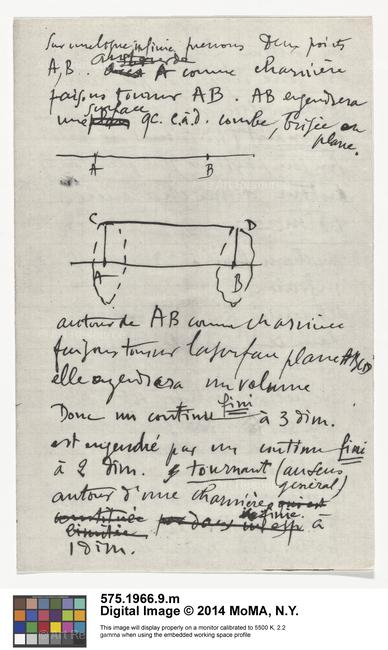 Sur une ligne infinie prenons Deux points
A, B. autour de A comme charnière
faisons tourner AB. AB engendrera
une surface qc. c.à.d. courbe, brisée ou
plane.
A B
C D
A B
autour de AB comme charnière
faisons tourner la surface plane ABCD
elle engendrera un volume
Donc un continu fini à 3 dim.
est engendré par un continu fini
à 2 dim. tournant (au sens
général)
autour d'une charnière
finie
constituée par dans à
limitée
1 dim.
575.1966.9.m
Digital Image © 2014 MoMA, N.Y.
This image will display properly on a monitor calibrated to 5500 K, 2.2
gamma when using the embedded working space profile